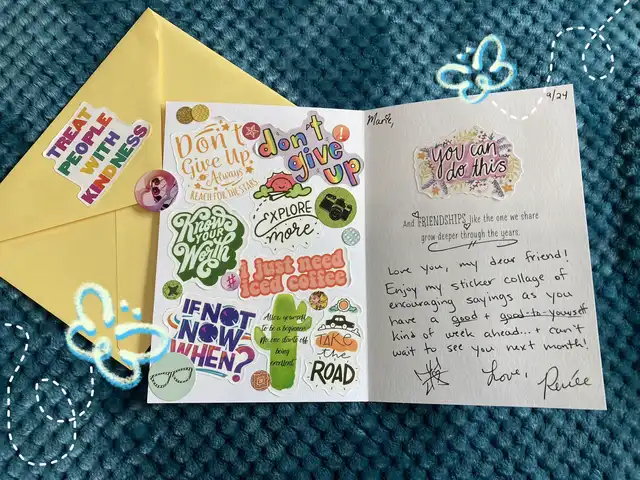 TREAT
PEOPLE
WITH
KINDNESS
Don't
Give Up
Always
REACH FOR THE STARS
don't
give
up
Know
YOUR
Worth
EXPLORE
more
I just need
iced coffee
IF NOT
NOW
WHEN?
Allow yourself
to be a beginner.
No one starts off
being
excellent.
TAKE
the
ROAD
9/24
Marie,
you can
do this
And FRIENDSHIPS like the one we share
grow deeper through the years.
Love you, my dear friend!
Enjoy my sticker collage of
encouraging sayings as you
have a good + good-to-yourself
kind of week ahead... + can't
wait to see you next month!
Love, Renée